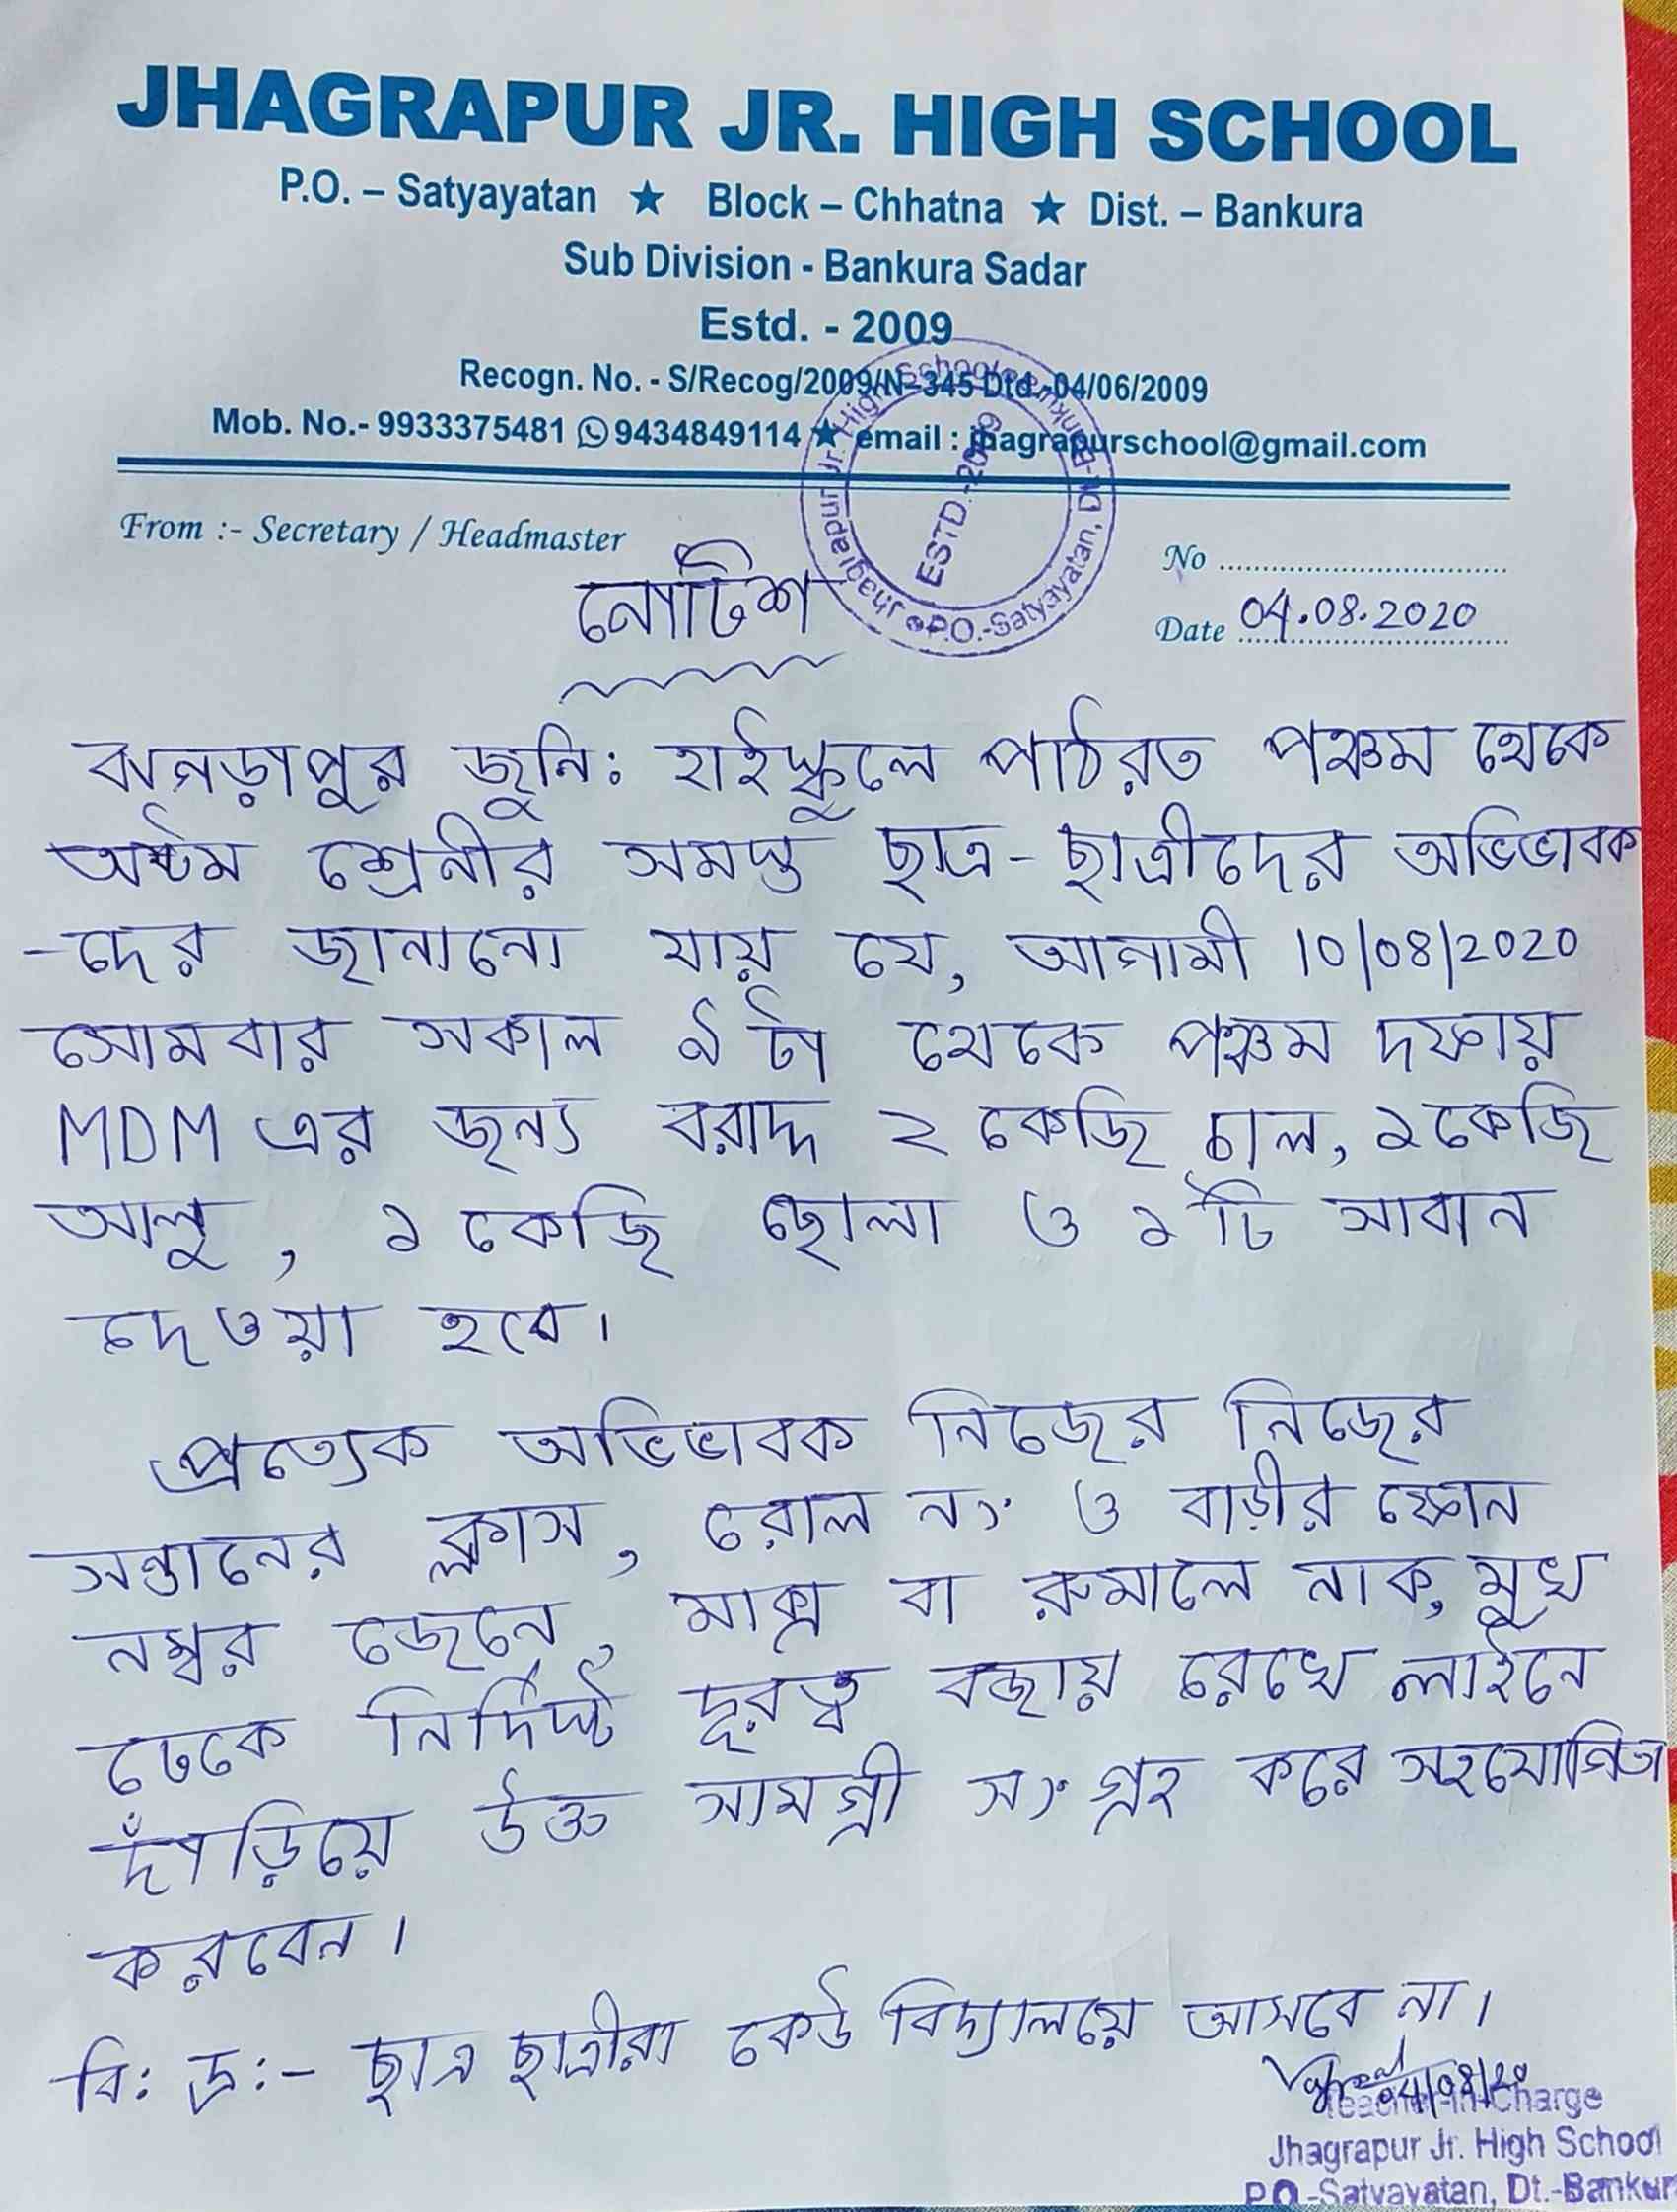 JHAGRAPUR JR. HIGH SCHOOL
P.O. – Satyayatan ★ Block – Chhatna ★ Dist. – Bankura
Sub Division - Bankura Sadar
Estd. - 2009
Recogn. No. - S/Recog/2009/N-345 Dtd.-04/06/2009
Mob. No.- 9933375481 9434849114 ★ email : jhagrapurschool@gmail.com
Jhagrapur Jr. High School • P.O.-Satyayatan, Dt.-Bankura
ESTD.-2009
From :- Secretary / Headmaster
No
নোটিশ
Date 04.08.2020
ঝগড়াপুর জুনি: হাইস্কুলে পাঠরত পঞ্চম থেকে
অষ্টম শ্রেনীর সমস্ত ছাত্র-ছাত্রীদের অভিভাবক
-দের জানানো যায় যে, আগামী 10/08/2020
সোমবার সকাল ৯ টা থেকে পঞ্চম দফায়
MDM এর জন্য বরাদ্দ ২ কেজি চাল, ১কেজি
আলু, ১ কেজি ছোলা ও ১ টি সাবান
দেওয়া হবে।
প্রত্যেক অভিভাবক নিজের নিজের
সন্তানের ক্লাস, রোল নং ও বাড়ীর ফোন
নম্বর জেনে, মাক্স বা রুমালে নাক, মুখ
ঢেকে নির্দিষ্ট দূরত্ব বজায় রেখে লাইনে
দাঁড়িয়ে উক্ত সামগ্রী সংগ্রহ করে সহযোগিতা
করবেন।
বি: দ্র:- ছাত্র ছাত্রীরা কেউ বিদ্যালয়ে আসবে না।
04/08/20
Teacher-in-Charge
Jhagrapur Jr. High School
P.O.-Satyayatan, Dt.-Bankur